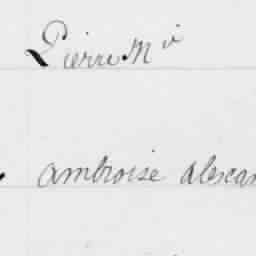 Pierre M vi
ambroise alexan